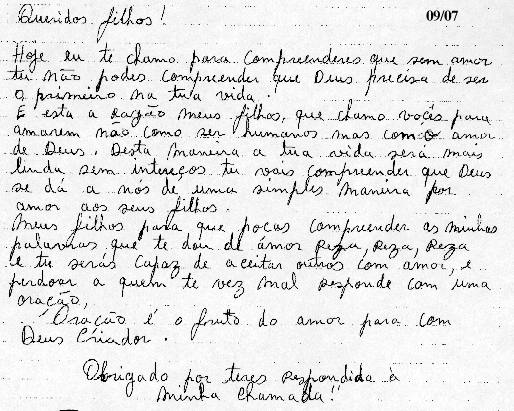 Queridos filhos!
09/07
Hoje eu te chamo para compreenderes que sem amor
tu não podes compreender que Deus precisa de ser
o primeiro na tua vida.
E esta a razão meus filhos, que chamo vocês para
amarem não como ser humanos mas com o amor
de Deus. Desta maneira a tua vida será mais
linda sem intereços tu vais compreender que Deus
se dá a nós de uma simples maneira por
amor aos seus filhos.
Meus filhos para que poças compreender as minhas
palavras que te dou de amor Reza, Reza, Reza
e tu serás capaz de aceitar outros com amor, e
perdoar a quem te vez mal responde com uma
oração,
Oração é o fruto do amor para com
Deus Criador.
Obrigado por teres respondida à
minha chamada!!